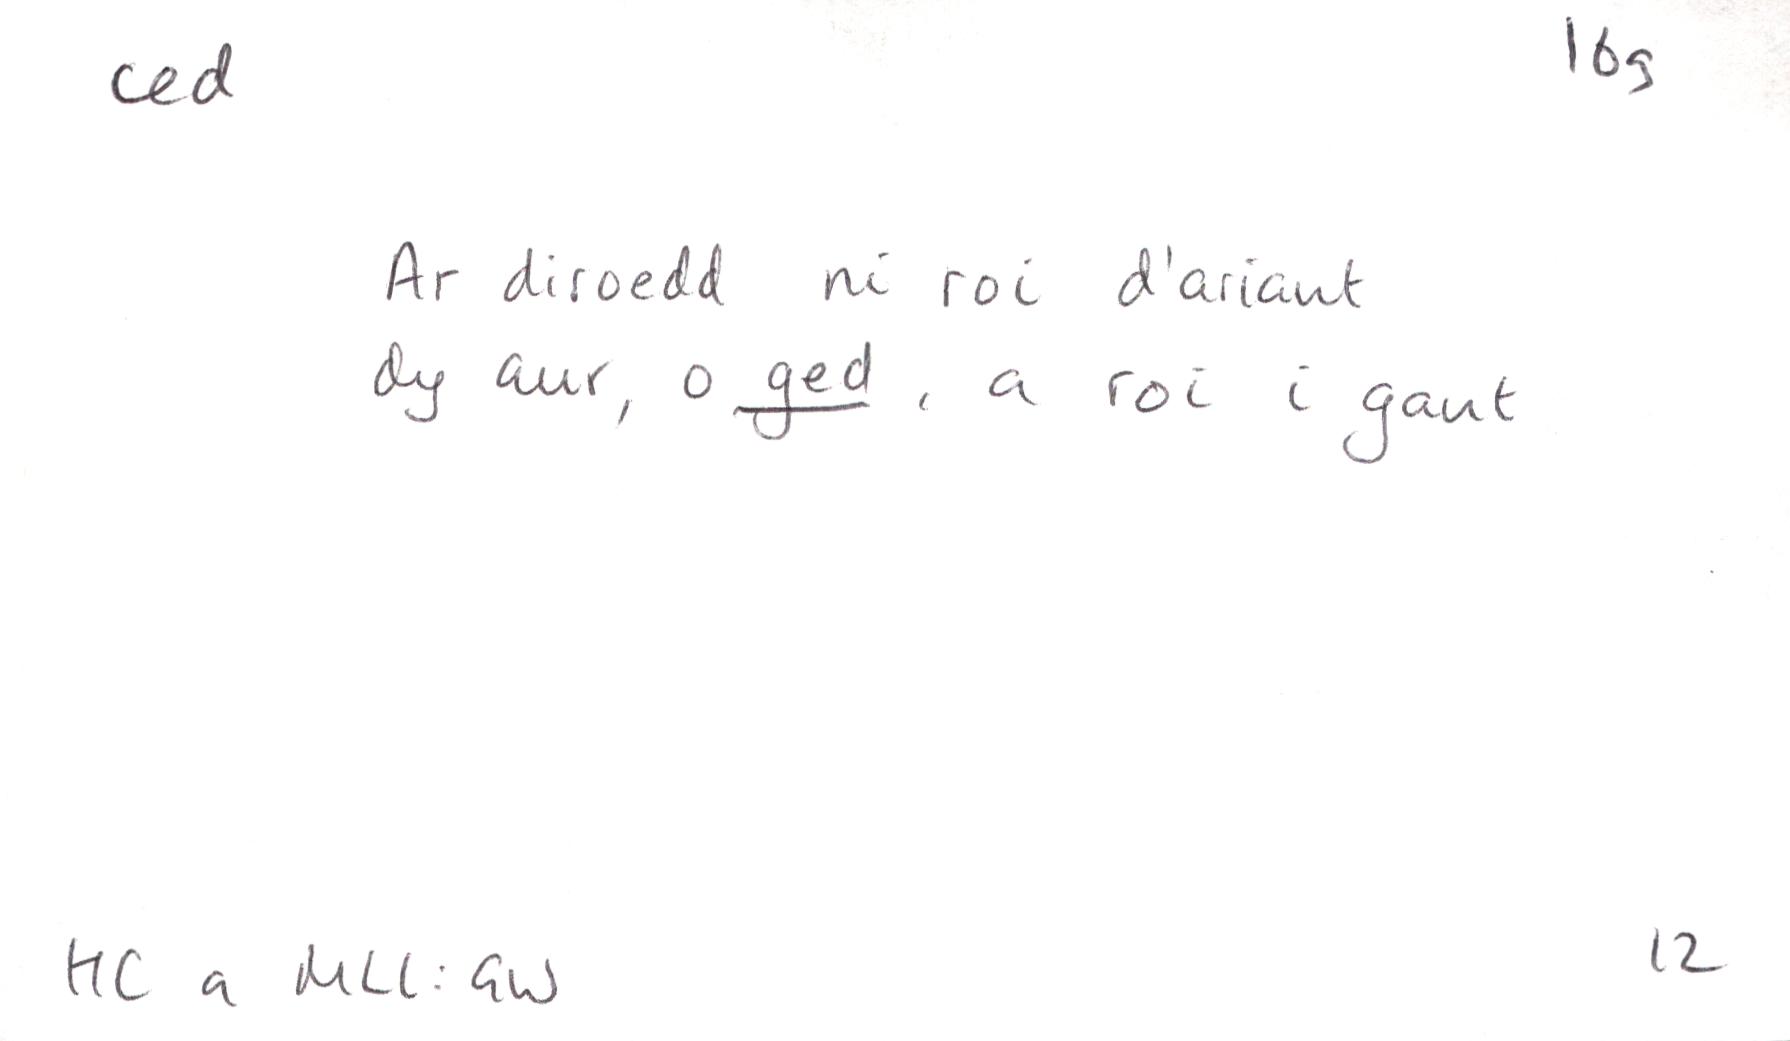 ced 16g
Ar diroedd ni roi d'ariant
dy aur, o ged, a roi i gant
HC a MLl: GW 12